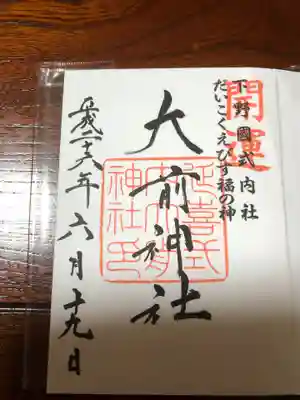 開運
下野國式内社
だいこくえびす福の神
大前神社
延喜式内大前神社印
平成二十六年六月十九日